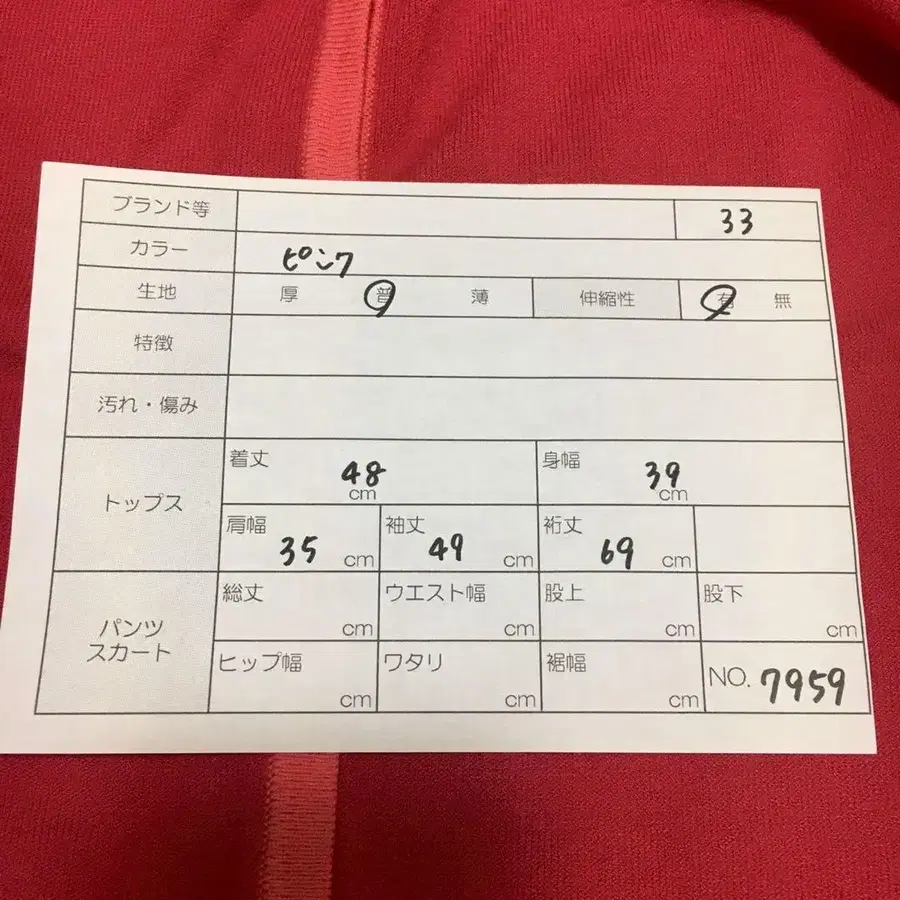 ブランド等 33
カラー ピンク
生地 厚 普 薄 伸縮性 有 無
特徴
汚れ・傷み
トップス
着丈 48 cm 身幅 39 cm
肩幅 35 cm 袖丈 49 cm 裄丈 69 cm
パンツ
スカート
総丈 cm ウエスト幅 cm 股上 cm 股下 cm
ヒップ幅 cm ワタリ cm 裾幅 cm NO. 7959